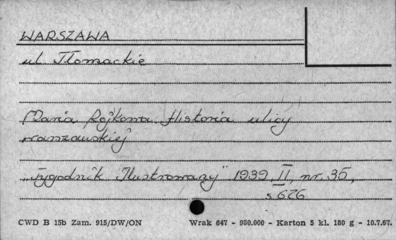 WARSZAWA
ul. Tłomackie
Maria Rojkowa. Historia ulicy
warszawskiej
"Tygodnik Ilustrowany" 1939, II, nr. 35,
s 626
CWD B 15b Zam. 915/DW/ON Wrak 647 - 980.000 - Karton 5 kl. 180 g - 10.7.67.